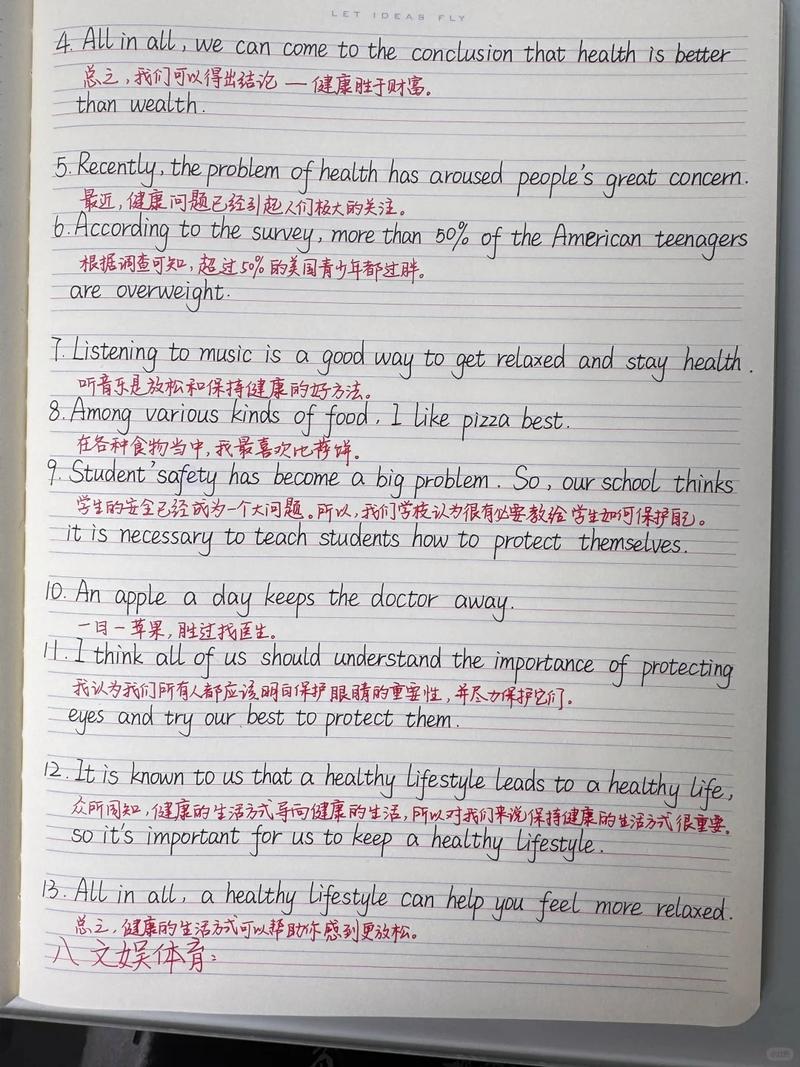 LET IDEAS FLY
4. All in all, we can come to the conclusion that health is better
总之，我们可以得出结论 — 健康胜于财富。
than wealth.
5. Recently, the problem of health has aroused people's great concern.
最近，健康问题已经引起人们极大的关注。
6. According to the survey, more than 50% of the American teenagers
根据调查可知，超过50%的美国青少年都过胖。
are overweight.
7. Listening to music is a good way to get relaxed and stay health.
听音乐是放松和保持健康的好方法。
8. Among various kinds of food, I like pizza best.
在各种食物当中，我最喜欢比萨饼。
9. Student'safety has become a big problem. So, our school thinks
学生的安全已经成为一个大问题。所以，我们学校认为很有必要教给学生如何保护自己。
it is necessary to teach students how to protect themselves.
10. An apple a day keeps the doctor away.
一日一苹果，胜过找医生。
11. I think all of us should understand the importance of protecting
我认为我们所有人都应该明白保护眼睛的重要性，并尽力保护它们。
eyes and try our best to protect them.
12. It is known to us that a healthy lifestyle leads to a healthy life,
众所周知，健康的生活方式导向健康的生活，所以对我们来说保持健康的生活方式很重要。
so it's important for us to keep a healthy lifestyle.
13. All in all, a healthy lifestyle can help you feel more relaxed.
总之，健康的生活方式可以帮助你感到更放松。
八 文娱体育：